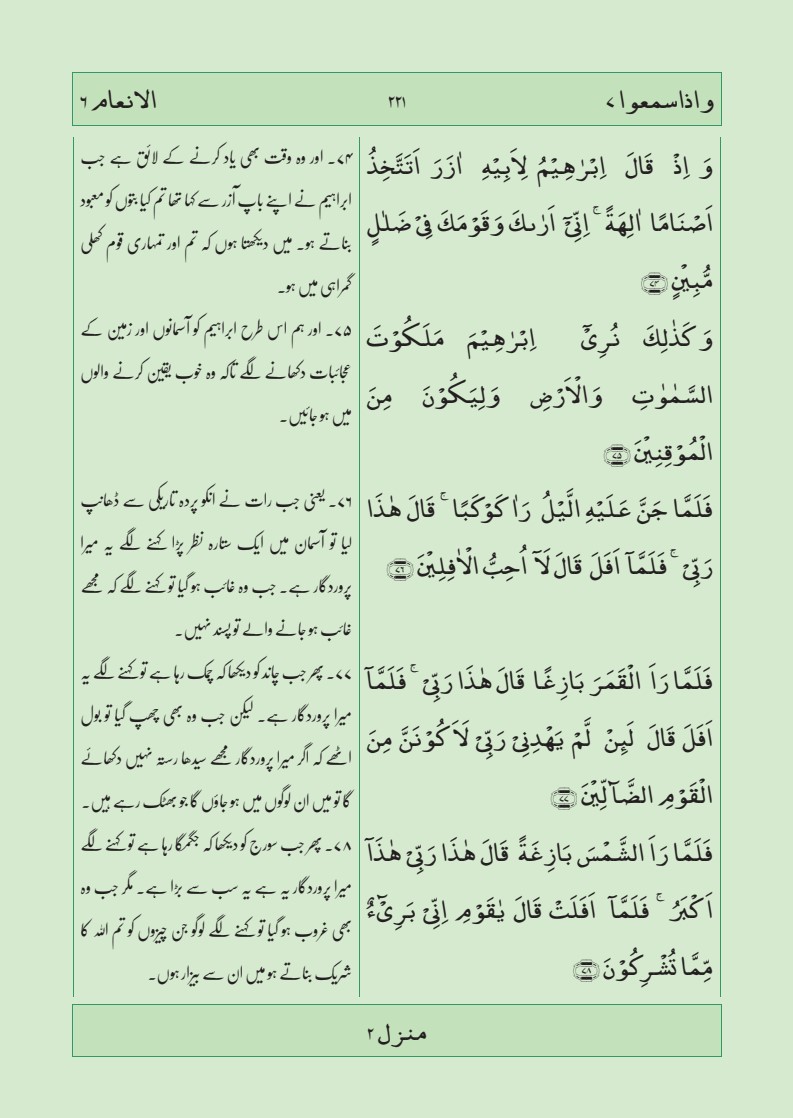 واذاسمعوا ۷ ۲۲۱ الانعام ۶
وَ اِذْ قَالَ اِبْرٰهِيْمُ لِاَبِيْهِ اٰزَرَ اَتَتَّخِذُ
اَصْنَامًا اٰلِهَةً ۚ اِنِّيْۤ اَرٰىكَ وَقَوْمَكَ فِيْ ضَلٰلٍ
مُّبِيْنٍ ۷۴
وَ كَذٰلِكَ نُرِيْۤ اِبْرٰهِيْمَ مَلَكُوْتَ
السَّمٰوٰتِ وَالْاَرْضِ وَلِيَكُوْنَ مِنَ
الْمُوْقِنِيْنَ ۷۵
فَلَمَّا جَنَّ عَلَيْهِ الَّيْلُ رَاٰ كَوْكَبًا ۚ قَالَ هٰذَا
رَبِّيْ ۚ فَلَمَّاۤ اَفَلَ قَالَ لَاۤ اُحِبُّ الْاٰفِلِيْنَ ۷۶
فَلَمَّا رَاَ الْقَمَرَ بَازِغًا قَالَ هٰذَا رَبِّيْ ۚ فَلَمَّاۤ
اَفَلَ قَالَ لَىِٕنْ لَّمْ يَهْدِنِيْ رَبِّيْ لَاَكُوْنَنَّ مِنَ
الْقَوْمِ الضَّآلِّيْنَ ۷۷
فَلَمَّا رَاَ الشَّمْسَ بَازِغَةً قَالَ هٰذَا رَبِّيْ هٰذَاۤ
اَكْبَرُ ۚ فَلَمَّاۤ اَفَلَتْ قَالَ يٰقَوْمِ اِنِّيْ بَرِيْٓءٌ
مِّمَّا تُشْرِكُوْنَ ۷۸
۷۴۔ اور وہ وقت بھی یاد کرنے کے لائق ہے جب
ابراہیم نے اپنے باپ آزر سے کہا تھا تم کیا بتوں کو معبود
بناتے ہو۔ میں دیکھتا ہوں کہ تم اور تمہاری قوم کھلی
گمراہی میں ہو۔
۷۵۔ اور ہم اس طرح ابراہیم کو آسمانوں اور زمین کے
عجائبات دکھانے لگے تاکہ وہ خوب یقین کرنے والوں
میں ہو جائیں۔
۷۶۔ یعنی جب رات نے انکو پردہ تاریکی سے ڈھانپ
لیا تو آسمان میں ایک ستارہ نظر پڑا کہنے لگے یہ میرا
پروردگار ہے۔ جب وہ غائب ہو گیا تو کہنے لگے کہ مجھے
غائب ہو جانے والے تو پسند نہیں۔
۷۷۔ پھر جب چاند کو دیکھا کہ چمک رہا ہے تو کہنے لگے یہ
میرا پروردگار ہے۔ لیکن جب وہ بھی چھپ گیا تو بول
اٹھے کہ اگر میرا پروردگار مجھے سیدھا رستہ نہیں دکھائے
گا تو میں ان لوگوں میں ہو جاؤں گا جو بھٹک رہے ہیں۔
۷۸۔ پھر جب سورج کو دیکھا کہ جگمگا رہا ہے تو کہنے لگے
میرا پروردگار یہ ہے یہ سب سے بڑا ہے۔ مگر جب وہ
بھی غروب ہو گیا تو کہنے لگے لوگو جن چیزوں کو تم اللہ کا
شریک بناتے ہو میں ان سے بیزار ہوں۔
منزل ۲